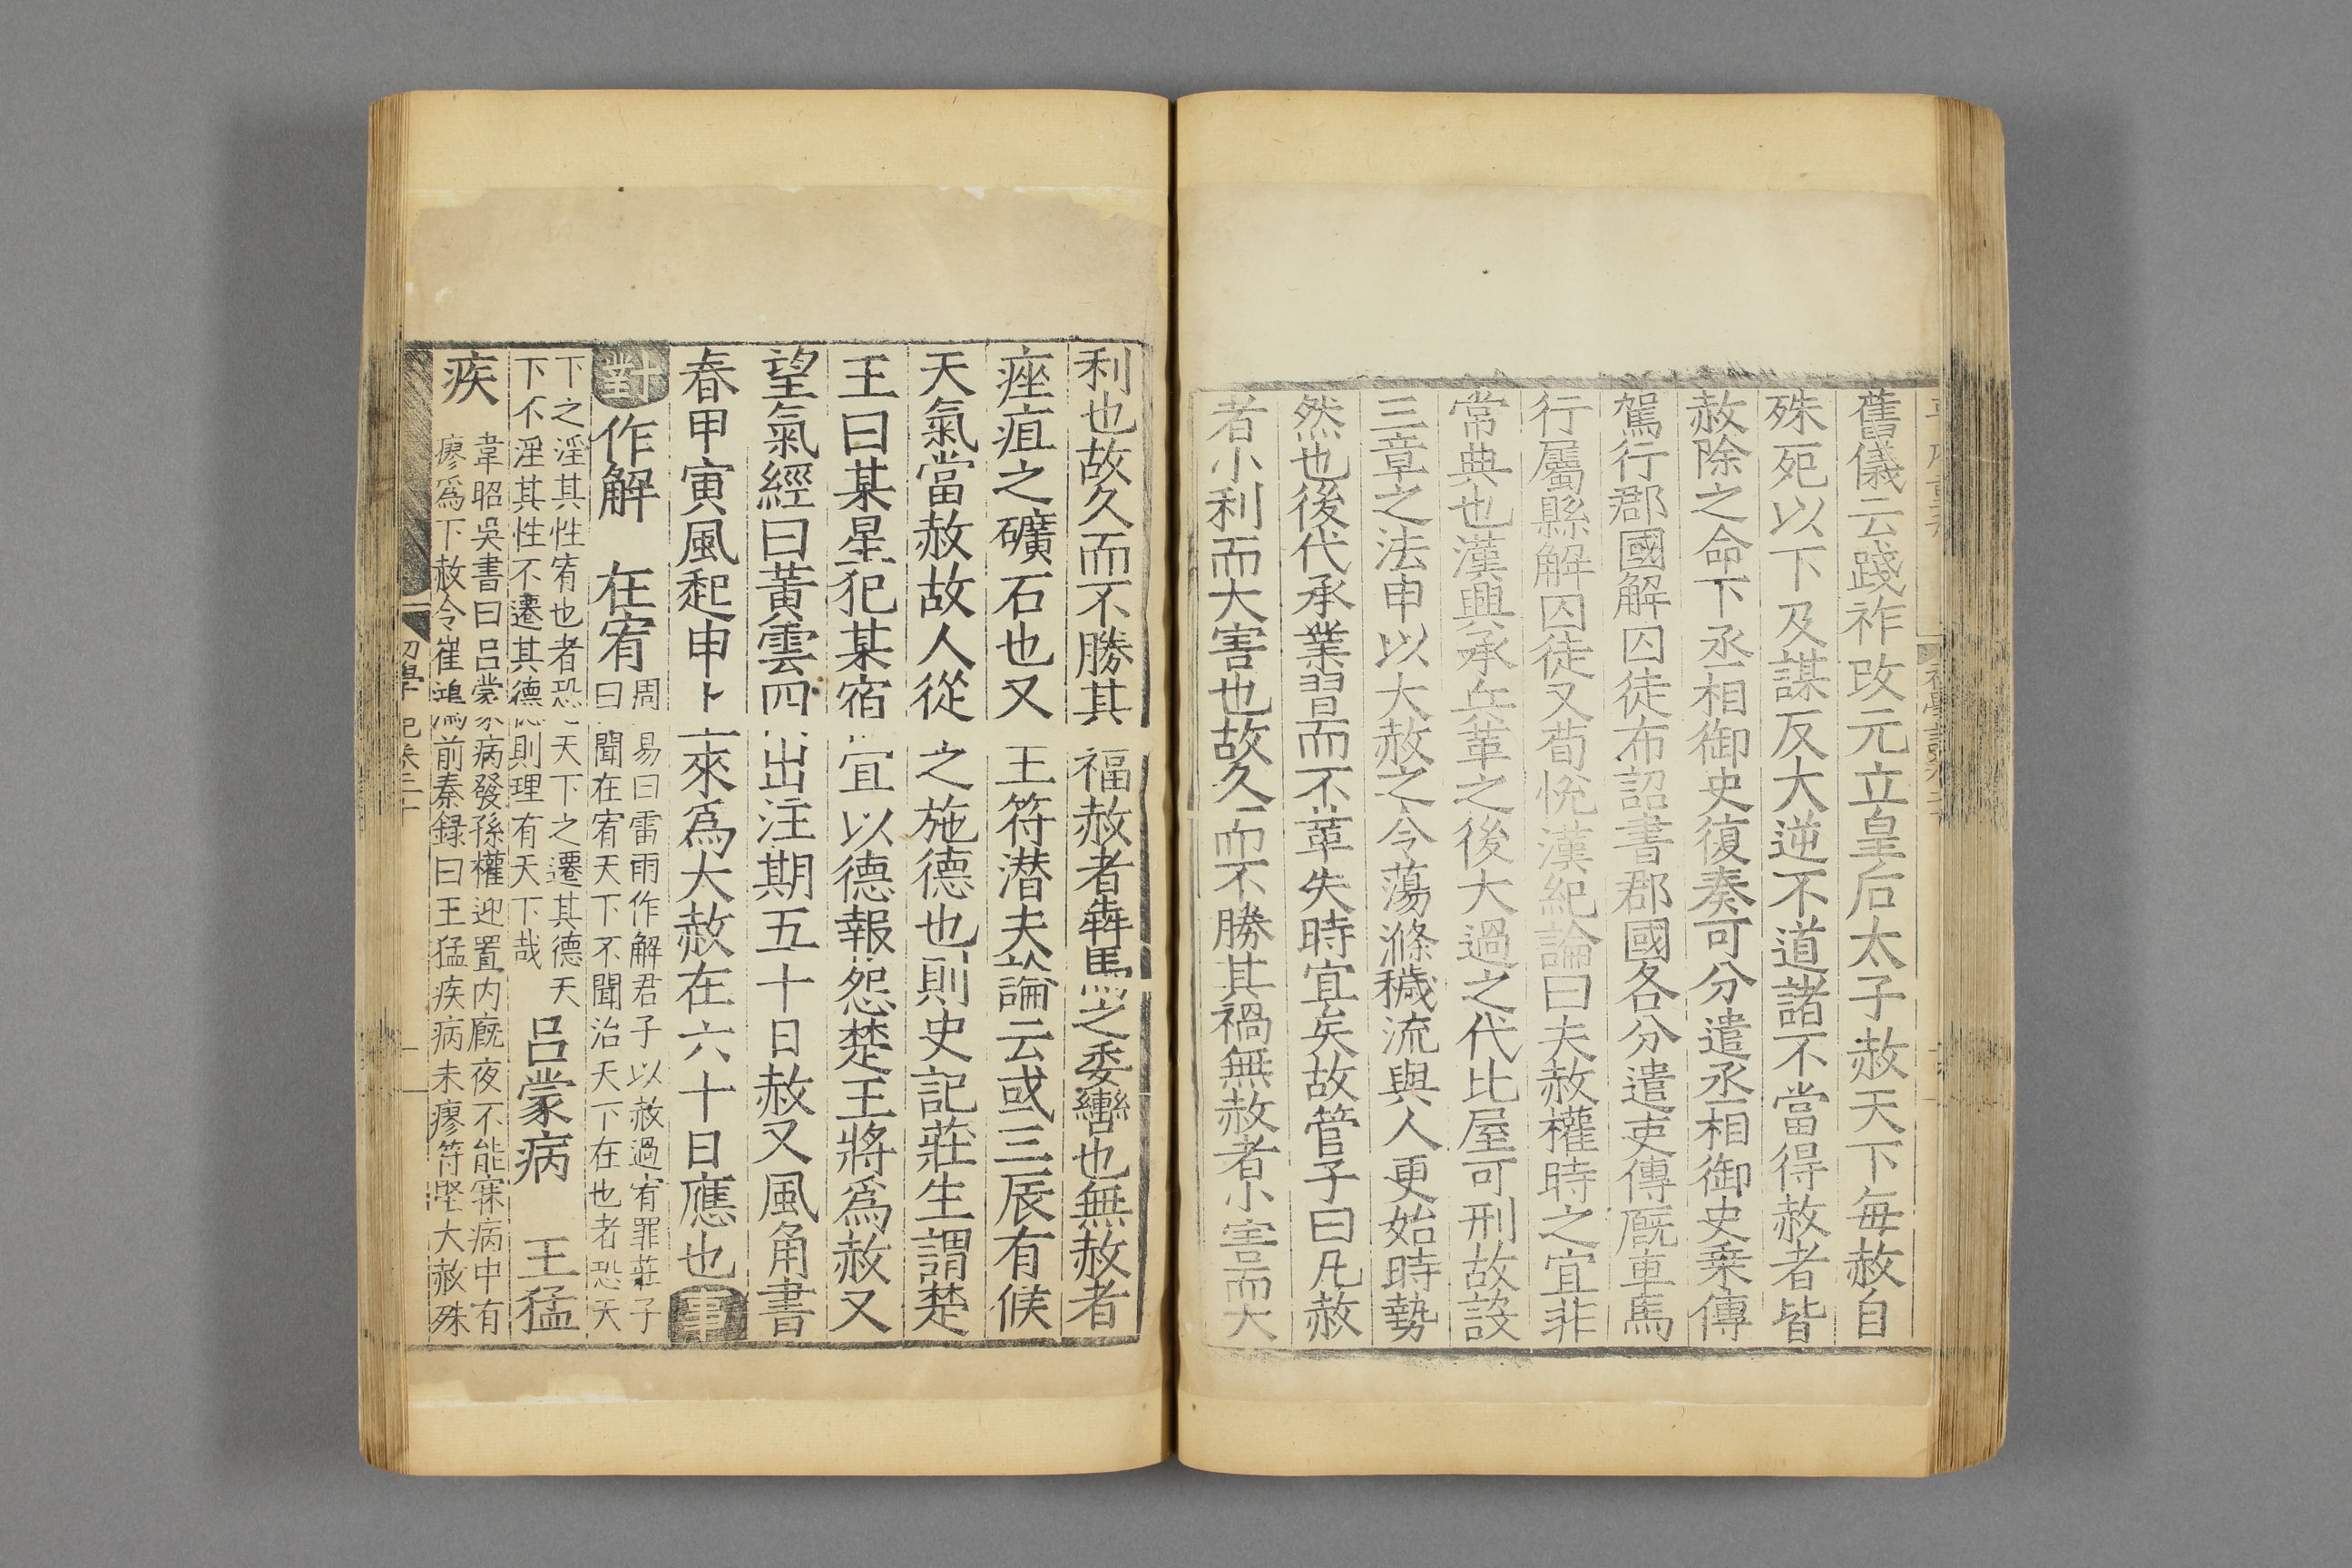 舊儀云踐祚改元立皇后太子赦天下每赦自
殊死以下及謀反大逆不道諸不當得赦者皆
赦除之命下丞相御史復奏可分遣丞相御史乗傳
駕行郡國解囚徒布詔書郡國各分遣吏傳厩車馬
行屬縣解囚徒又荀悅漢紀論曰夫赦權時之宜非
常典也漢興承兵革之後大過之代比屋可刑故設
三章之法申以大赦之令蕩滌穢流與人更始時勢
然也後代承業習而不革失時宜矣故管子曰凡赦
者小利而大害也故久而不勝其禍無赦者小害而大
利也故久而不勝其福赦者犇馬之委轡也無赦者
痤疽之礦石也又王符潜夫論云或三辰有候
天氣當赦故人從之施德也則史記莊生謂楚
王曰某星犯某宿宜以德報怨楚王將爲赦又
望氣經曰黃雲四出注期五十日赦又風角書
春甲寅風起申上來爲大赦在六十日應也事
對作解 在宥
周易曰雷雨作解君子以赦過宥罪莊子
曰聞在宥天下不聞治天下在也者恐天
下之淫其性宥也者恐天下之遷其德天
下不淫其性不遷其德則理有天下哉
呂蒙病 王猛
疾
韋昭吳書曰呂蒙病發孫權迎置内厩夜不能寐病中有
瘳爲下赦令崔鴻前秦録曰王猛疾病未瘳符堅大赦殊
初學記卷二十